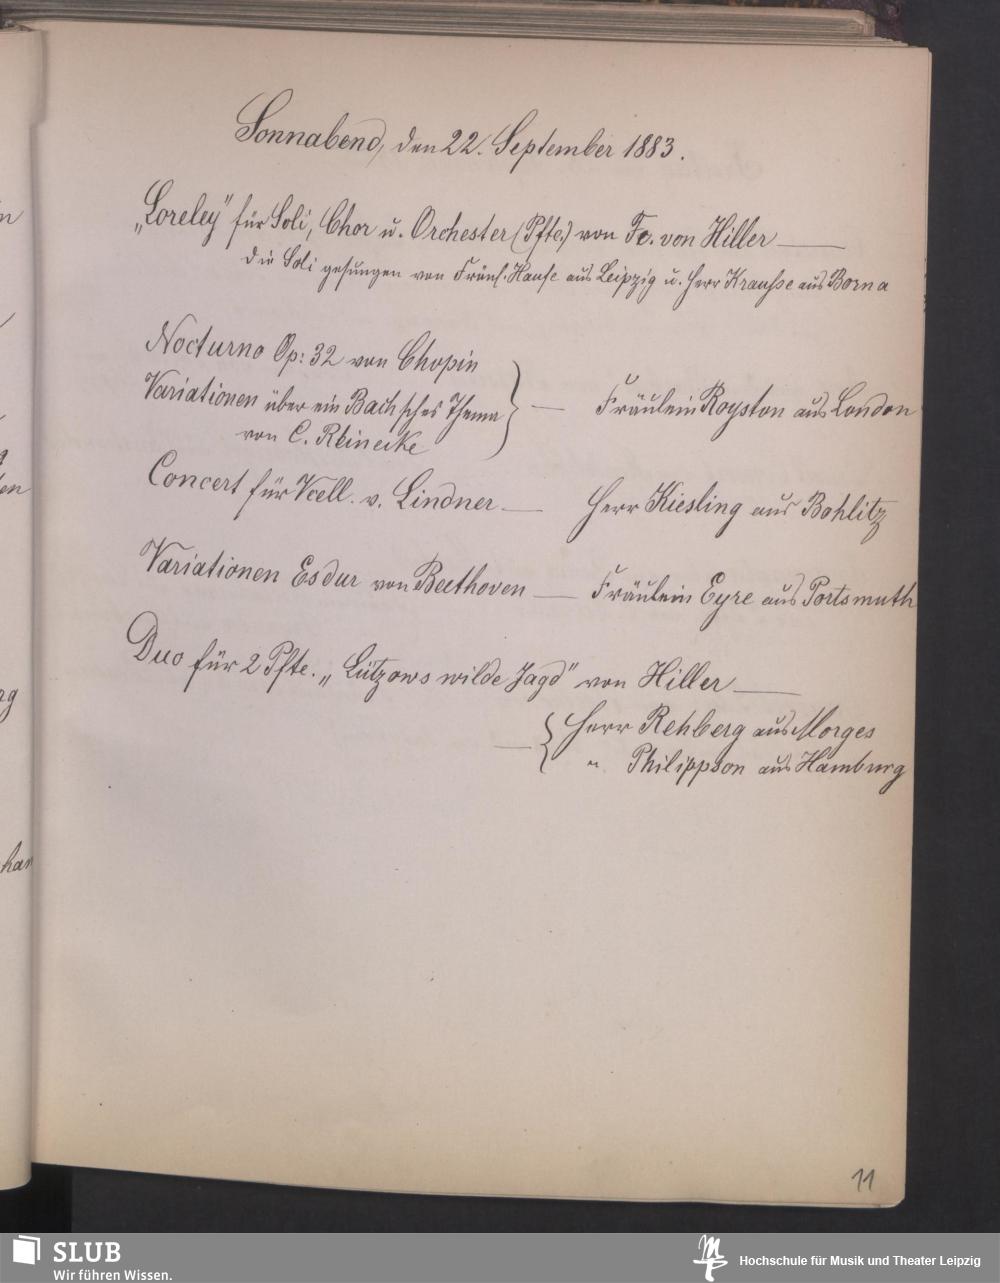 Sonnabend, den 22. September 1883.
„Loreley" für Soli, Chor u. Orchester (Pfte.) von Fr. von Hiller —
die Soli gesungen von Fräul. Hanse aus Leipzig u. Herr Krausse aus Borna
Nocturno Op: 32 von Chopin
Variationen über ein Bach'sches Thema
von C. Reinecke
— Fräulein Royston aus London
Concert für Vcell. v. Lindner — Herr Kiesling aus Bohlitz
Variationen Esdur von Beethoven — Fräulein Eyre aus Portsmuth
Duo für 2 Pfte. „Lützows wilde Jagd" von Hiller —
— Herr Rehberg aus Morges
" Philippson aus Hamburg
11
SLUB
Wir führen Wissen.
Hochschule für Musik und Theater Leipzig